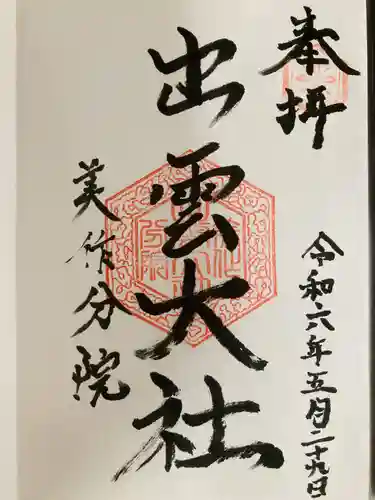 奉拝
令和六年五月二十九日
出雲大社
美作分院